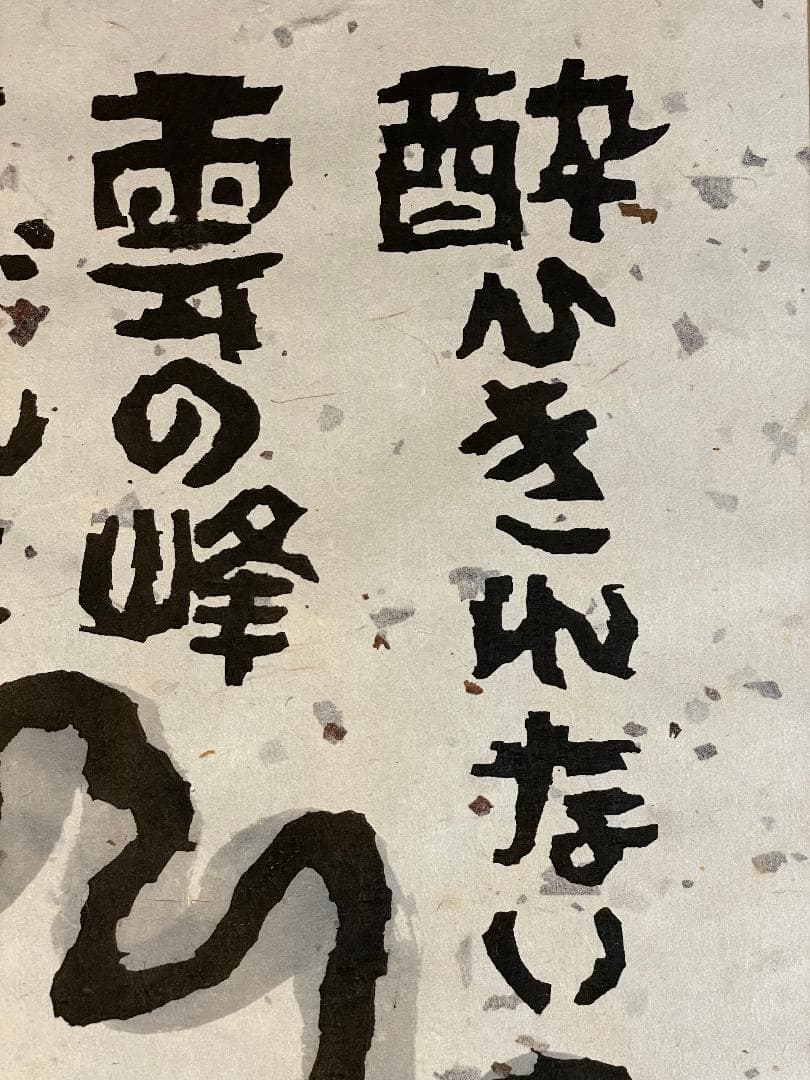 酔ひきれない
雲の峰